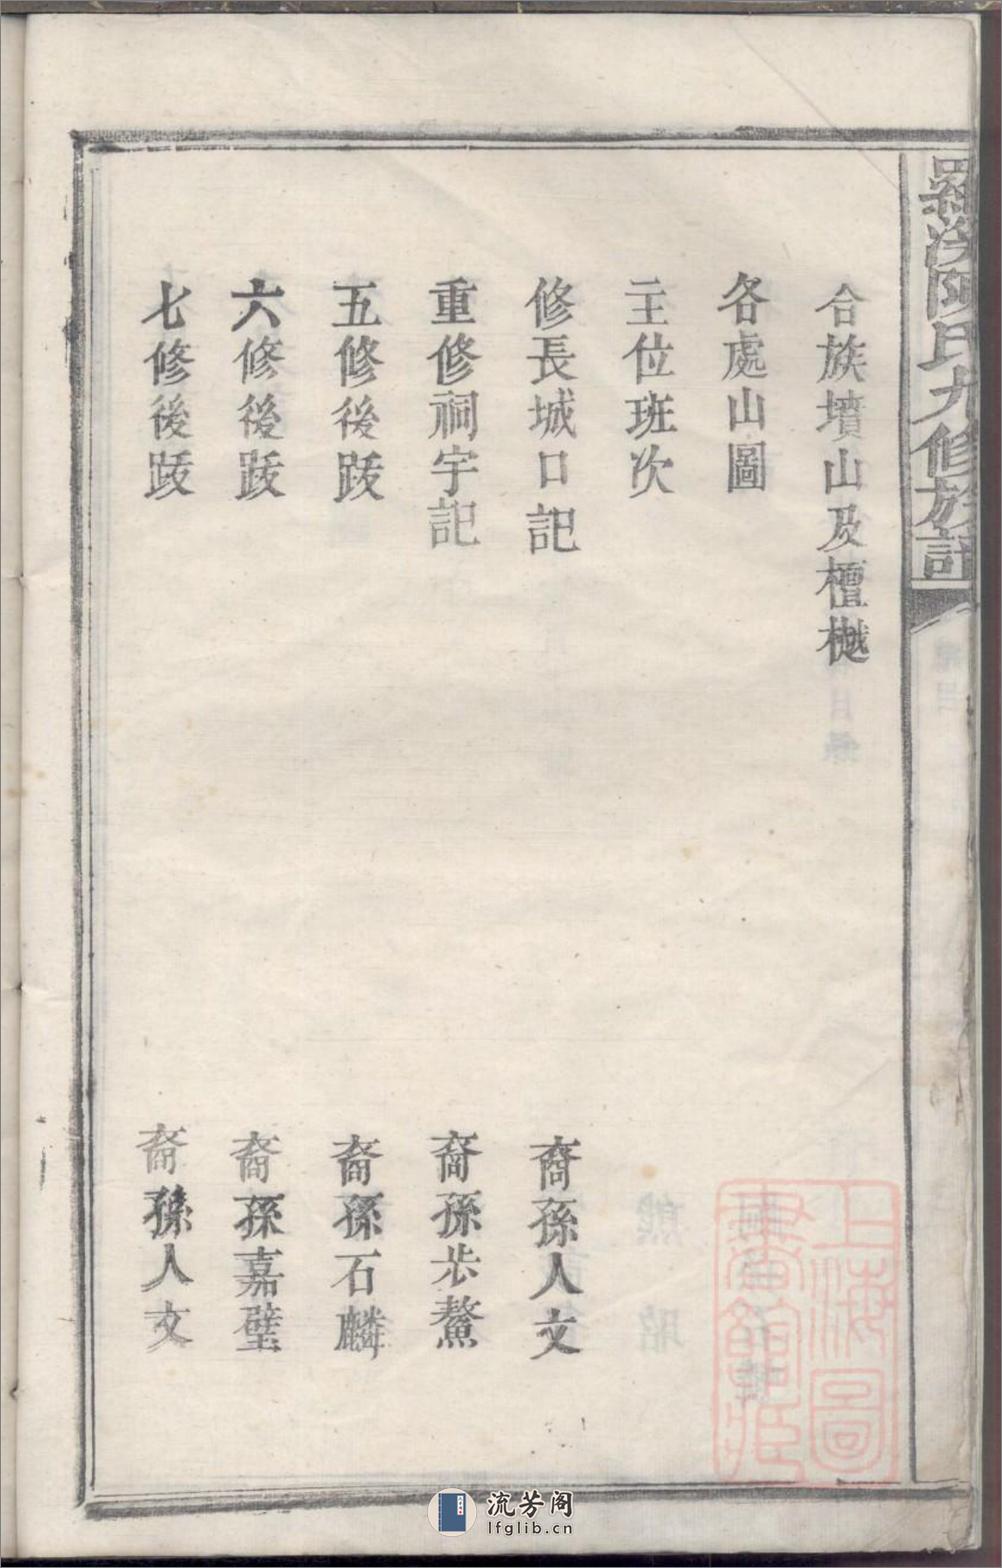 合族墳山及檀樾
各處山圖
主位班次
修長城口記 裔孫人文
重修祠宇記 裔孫步鰲
五修後跋 裔孫石麟
六修後跋 裔孫嘉璧
七修後跋 裔孫人文
氏九修族譜
上海圖書館藏
流芳阁
lfglib.cn